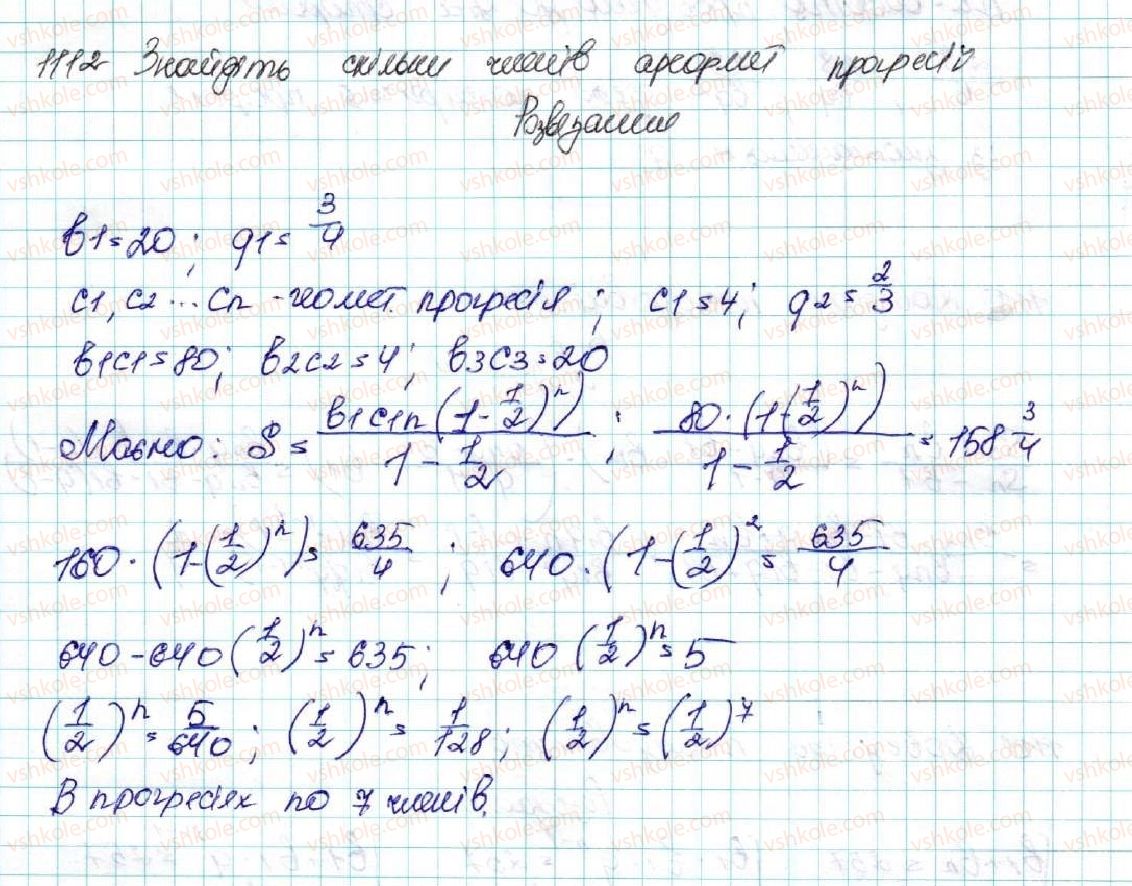 1112 Знайдіть скільки членів арефмет прогресій
Розвезання
b1=20; q1=3/4
c1, c2 ... cn - геомет. прогресія; c1=4; q2=2/3
b1c1=80; b2c2=4; b3c3=20
Маємо: S = b1c1n(1-(1/2)^n) / 1-1/2; 80·(1-(1/2)^n) / 1-1/2 = 158 3/4
160·(1-(1/2)^n) = 635/4; 640·(1-(1/2)^2 = 635/4
640-640(1/2)^n = 635; 640(1/2)^n = 5
(1/2)^n = 5/640; (1/2)^n = 1/128; (1/2)^n = (1/2)^7
В прогресіях по 7 членів.